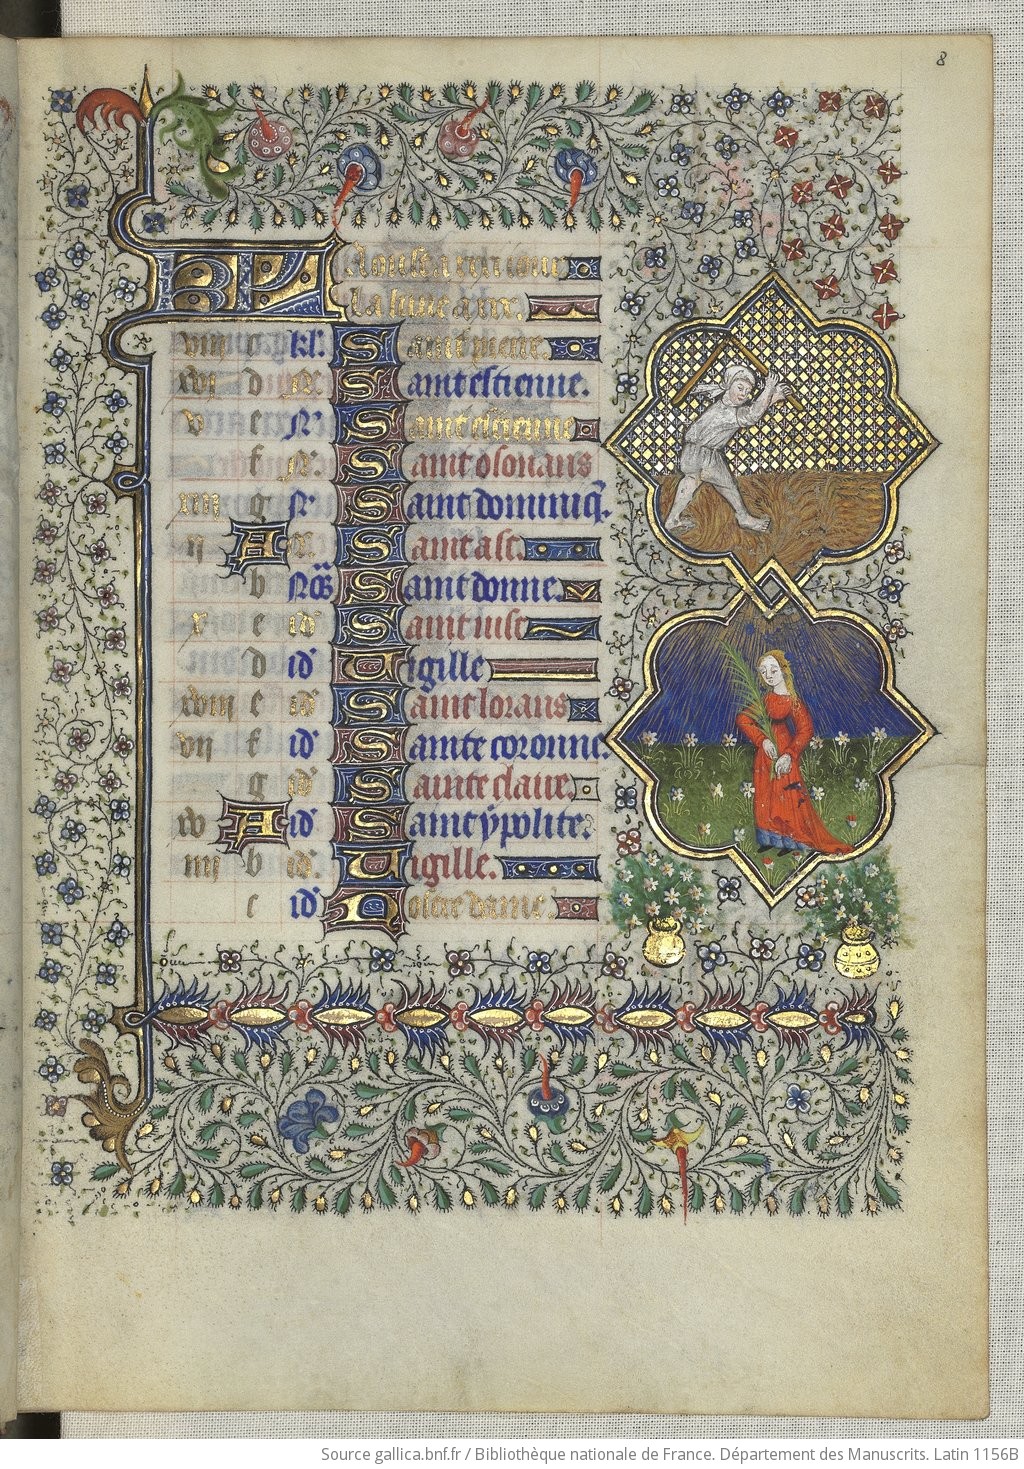 8
KL Aoust a xxxi iour
La lune a xxx.
viii c kl'. Saint pierre.
xvi d Saint estienne.
v e N'. Saint estienne
f Saint osouans
xiii g N'. Saint dominiq'.
ii A Saint
b Nōs Saint donne.
x c id' Saint iust
d id' Vigille
xviii e id' Saint lorans
vii f id' Sainte coronne.
g id' Sainte claire.
xv A id' Saint ypolite.
iiii b id' Vigille.
c id' Nostre dame.
Source gallica.bnf.fr / Bibliothèque nationale de France. Département des Manuscrits. Latin 1156B